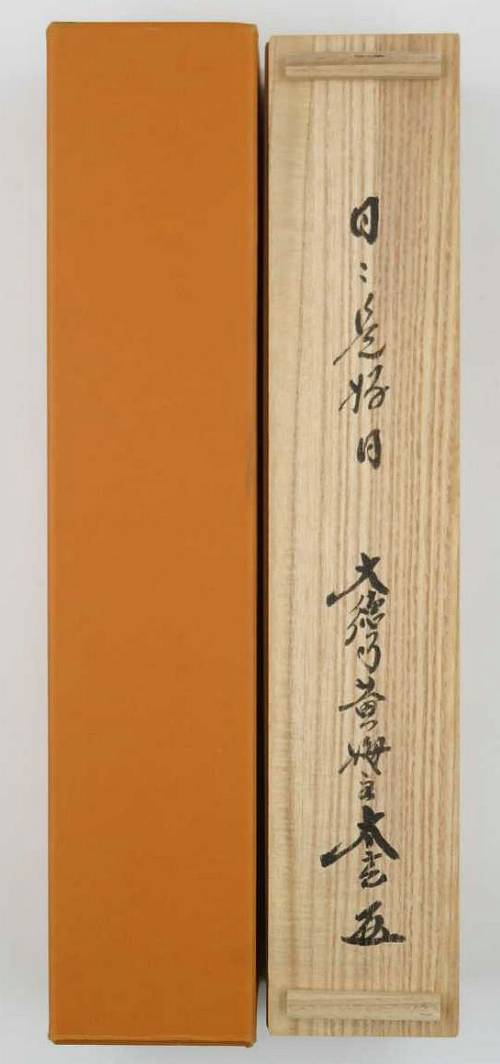 日々是好日 大徳寺黄梅主太玄 五